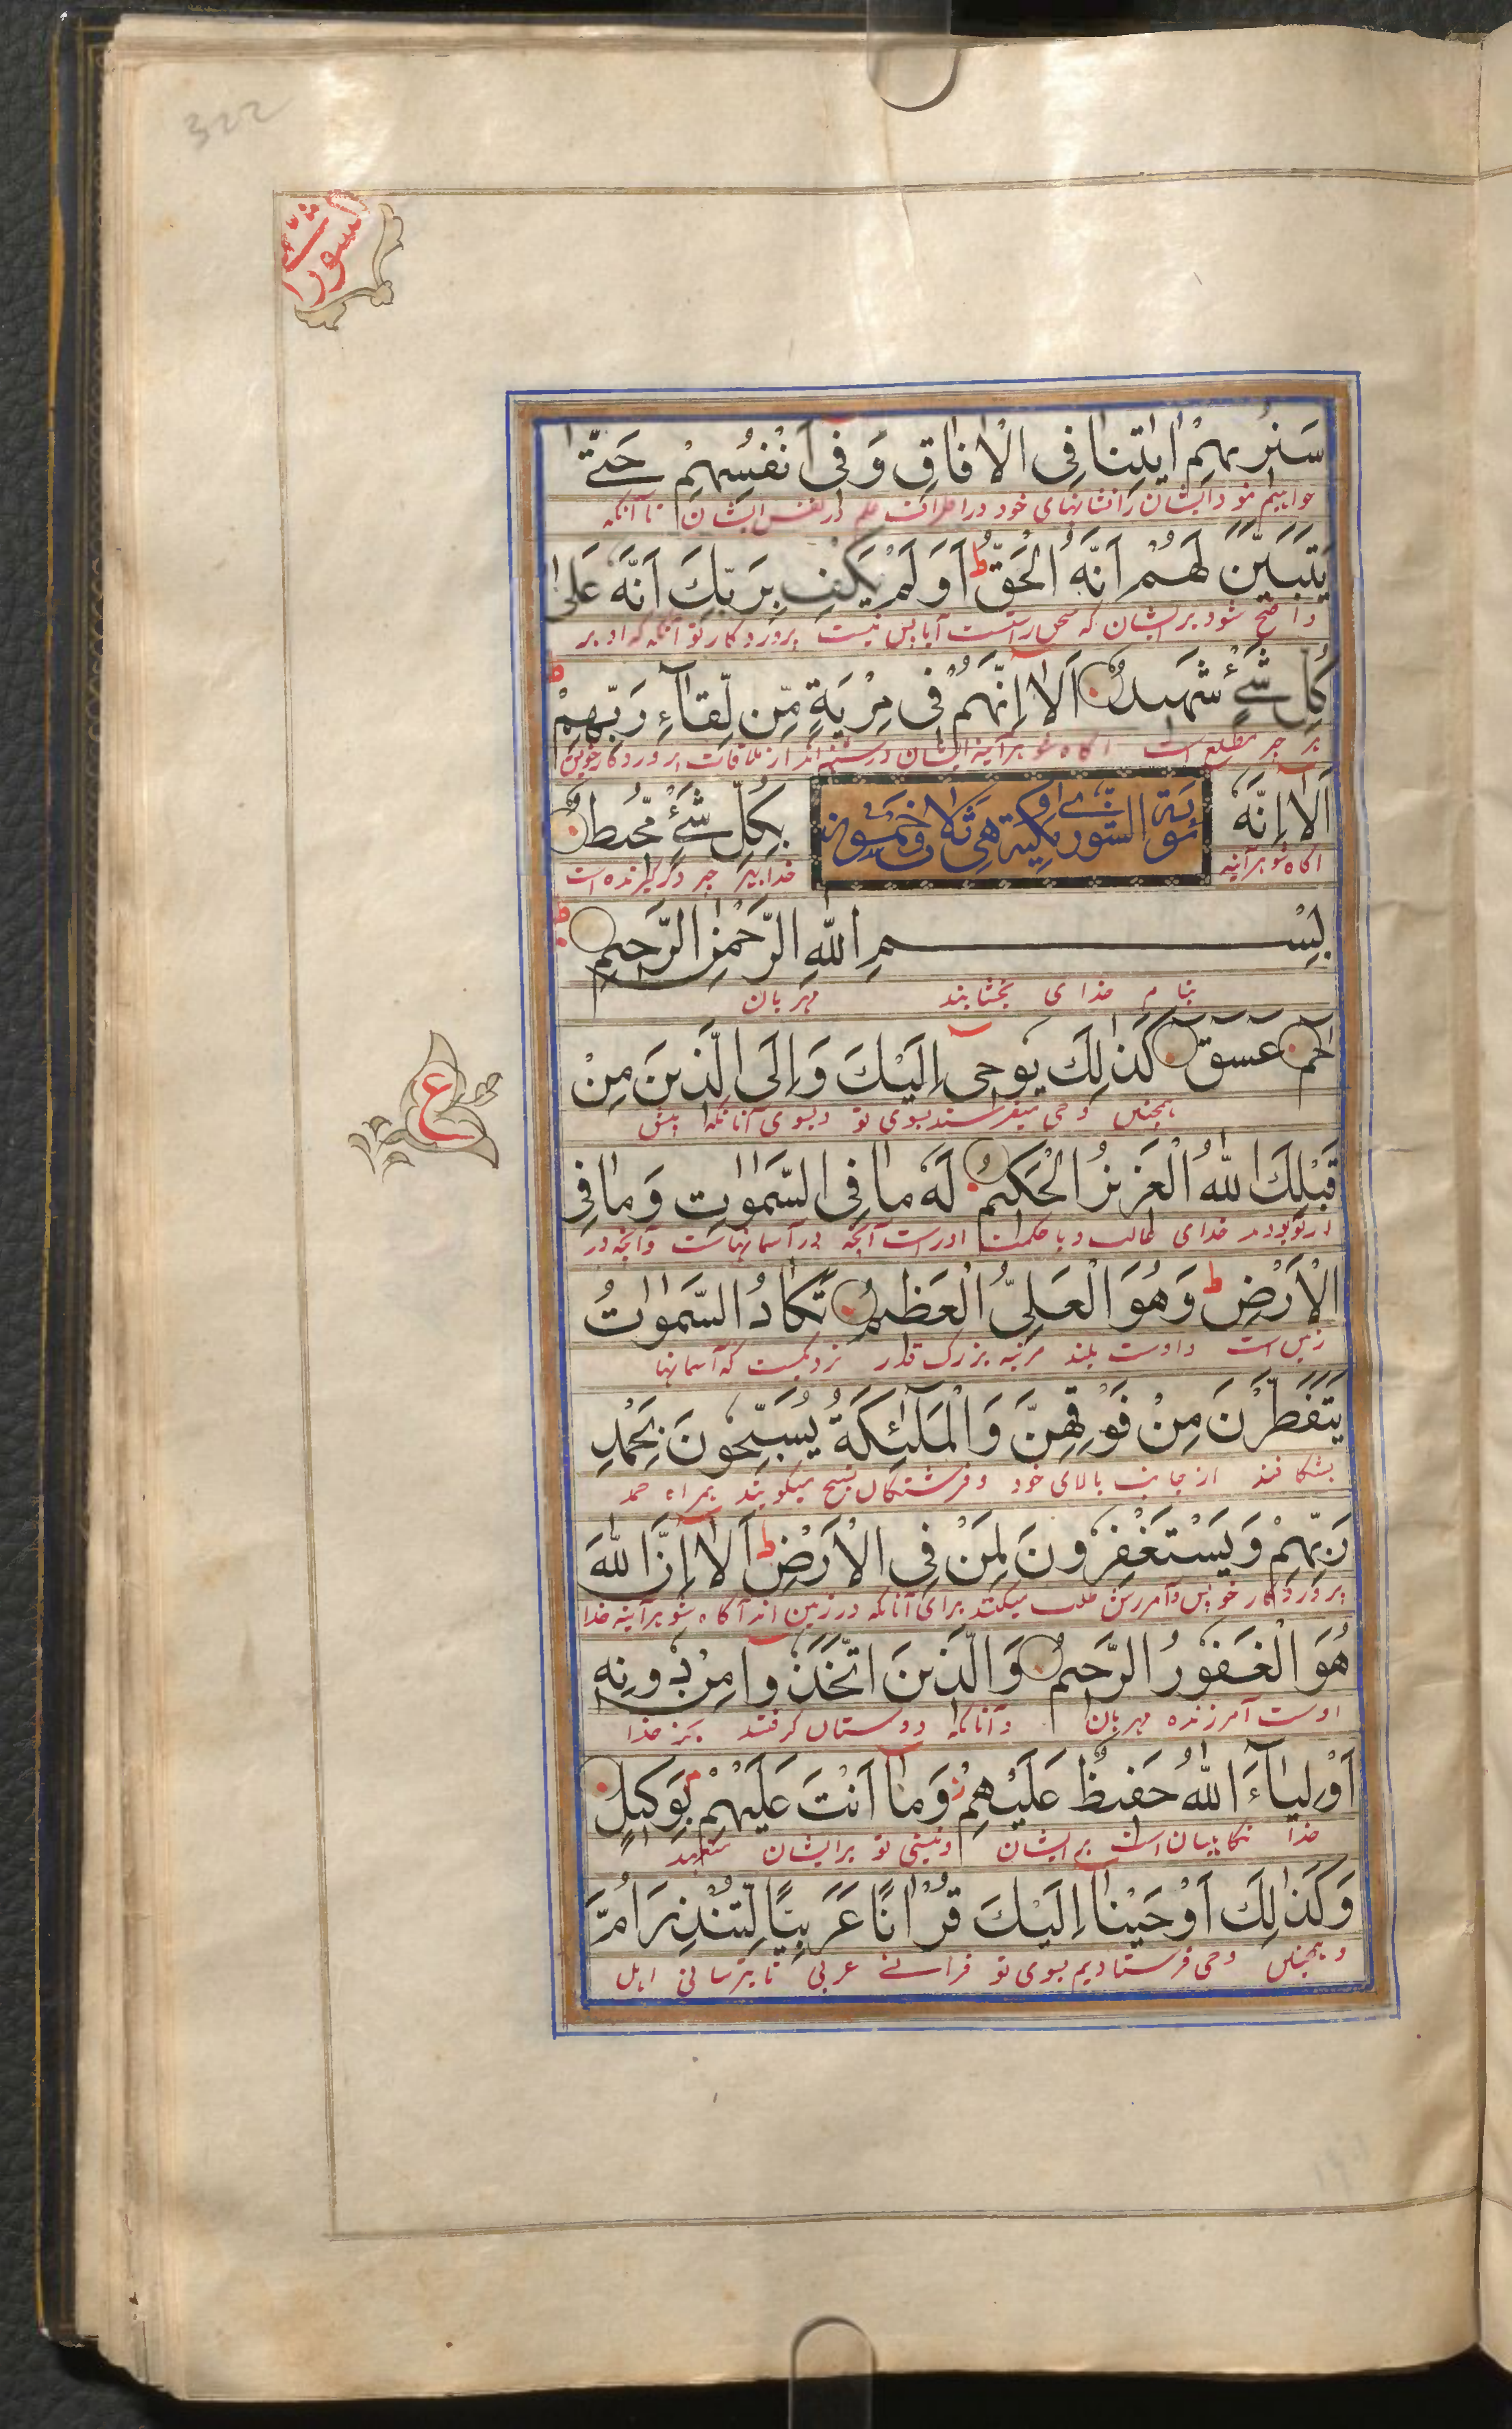 322
الشورى
سَنُرِيهِمْ اٰيٰتِنَا فِى الْاٰفَاقِ وَفِىٓ اَنْفُسِهِمْ حَتّٰى
خواهیم نمود ایشان را نشانهای خود در اطراف عالم و در نفس ایشان تا آنکه
يَتَبَيَّنَ لَهُمْ اَنَّهُ الْحَقُّ ط اَوَلَمْ يَكْفِ بِرَبِّكَ اَنَّهٗ عَلٰى
واضح شود بر ایشان که سخن راست است آیا بس نیست پروردگار تو آنکه او بر
كُلِّ شَىْءٍ شَهِيدٌ اَلَآ اِنَّهُمْ فِى مِرْيَةٍ مِّن لِّقَآءِ رَبِّهِمْ ط
هر چیز مطلع است آگاه شو هرآینه ایشان در شبه اند از ملاقات پروردگار خویش
اَلَآ اِنَّهٗ بِكُلِّ شَىْءٍ مُّحِيطٌ
سورة الشورى مكية وهى ثلاث وخمسون اية
آگاه شو هرآینه خدا بهر چیز در گیرنده است
بِسْمِ اللّٰهِ الرَّحْمٰنِ الرَّحِيمِ
بنام خدای بخشاینده مهربان
حٰمٓ عٓسٓقٓ كَذٰلِكَ يُوحِىٓ اِلَيْكَ وَاِلَى الَّذِينَ مِنْ
همچنین وحی میفرستد بسوی تو و بسوی آنانکه پیش
ع
قَبْلِكَ اللّٰهُ الْعَزِيزُ الْحَكِيمُ لَهٗ مَا فِى السَّمٰوٰتِ وَمَا فِى
از تو بودند خدای غالب و با حکمت او راست آنچه در آسمانهاست و آنچه در
الْاَرْضِ ط وَهُوَ الْعَلِىُّ الْعَظِيمُ تَكَادُ السَّمٰوٰتُ
زمین است و اوست بلند مرتبه بزرگ قدر نزدیکست که آسمانها
يَتَفَطَّرْنَ مِنْ فَوْقِهِنَّ وَالْمَلٰٓئِكَةُ يُسَبِّحُونَ بِحَمْدِ
بشکافند از جانب بالای خود و فرشتگان تسبیح میگویند همراه حمد
رَبِّهِمْ وَيَسْتَغْفِرُونَ لِمَنْ فِى الْاَرْضِ ط اَلَآ اِنَّ اللّٰهَ
پروردگار خویش و آمرزش طلب میکنند برای آنانکه در زمین اند آگاه شو هرآینه خدا
هُوَ الْغَفُورُ الرَّحِيمُ وَالَّذِينَ اتَّخَذُوا مِنْ دُونِهٖٓ
اوست آمرزنده مهربان و آنانکه دوستان گرفتند بجز خدا
اَوْلِيَآءَ اللّٰهُ حَفِيظٌ عَلَيْهِمْ ز وَمَآ اَنْتَ عَلَيْهِمْ بِوَكِيلٍ
خدا نگاهبان است بر ایشان و نیستی تو بر ایشان متعهد
وَكَذٰلِكَ اَوْحَيْنَآ اِلَيْكَ قُرْاٰنًا عَرَبِيًّا لِّتُنْذِرَ اُمَّ
و همچنین وحی فرستادیم بسوی تو قرآنے عربی تا بترسانی اهل